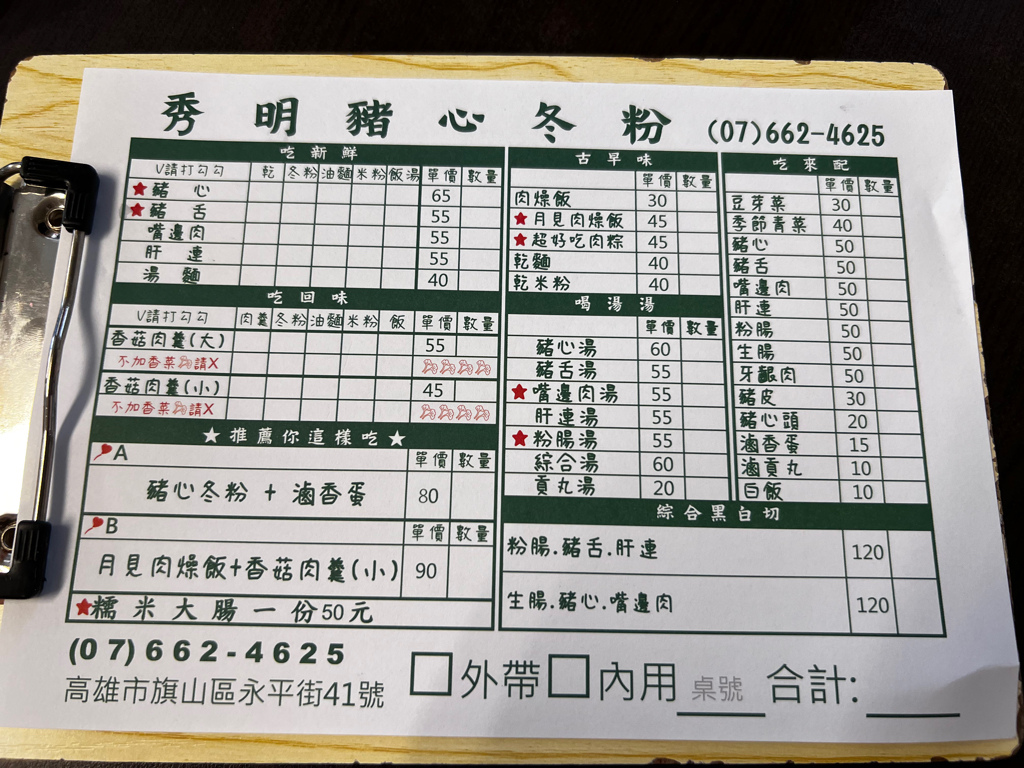 秀明豬心冬粉 (07)662-4625
吃新鮮
V請打勾勾 乾 冬粉 油麵 米粉 飯湯 單價 數量
★豬心 65
★豬舌 55
嘴邊肉 55
肝連 55
湯麵 40
吃回味
V請打勾勾 肉羹 冬粉 油麵 米粉 飯 單價 數量
香菇肉羹(大) 55
不加香菜請X
香菇肉羹(小) 45
不加香菜請X
★推薦你這樣吃★
A 單價 數量
豬心冬粉 + 滷香蛋 80
B 單價 數量
月見肉燥飯+香菇肉羹(小) 90
★糯米大腸一份50元
古早味
單價 數量
肉燥飯 30
★月見肉燥飯 45
★超好吃肉粽 45
乾麵 40
乾米粉 40
喝湯湯
單價 數量
豬心湯 60
豬舌湯 55
★嘴邊肉湯 55
肝連湯 55
★粉腸湯 55
綜合湯 60
貢丸湯 20
吃來配
單價 數量
豆芽菜 30
季節青菜 40
豬心 50
豬舌 50
嘴邊肉 50
肝連 50
粉腸 50
生腸 50
牙齦肉 50
豬皮 30
豬心頭 20
滷香蛋 15
滷貢丸 10
白飯 10
綜合黑白切
粉腸.豬舌.肝連 120
生腸.豬心.嘴邊肉 120
(07)662-4625
高雄市旗山區永平街41號
□外帶□內用 桌號 合計: